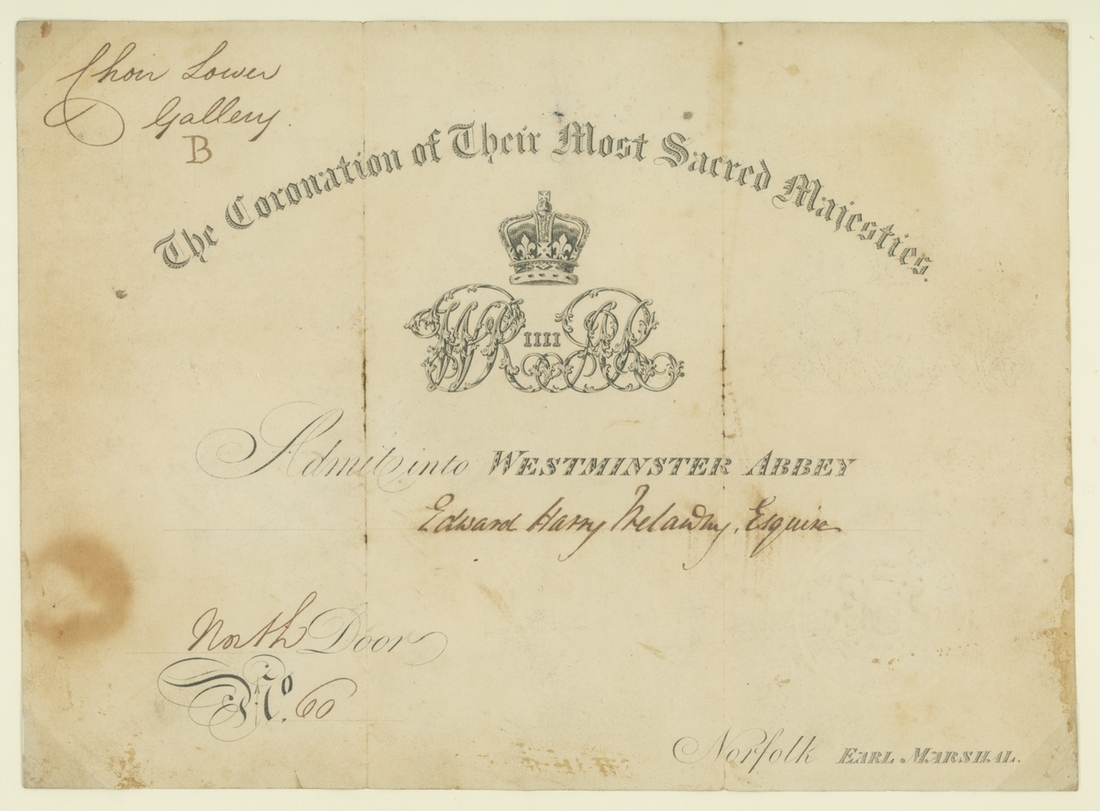 Choir Lower
Gallery.
B
The Coronation of Their Most Sacred Majesties.
WR IIII AR
Admit into WESTMINSTER ABBEY
Edward Harry Trelawny, Esquire
North Door
No. 60
Norfolk EARL MARSHAL.